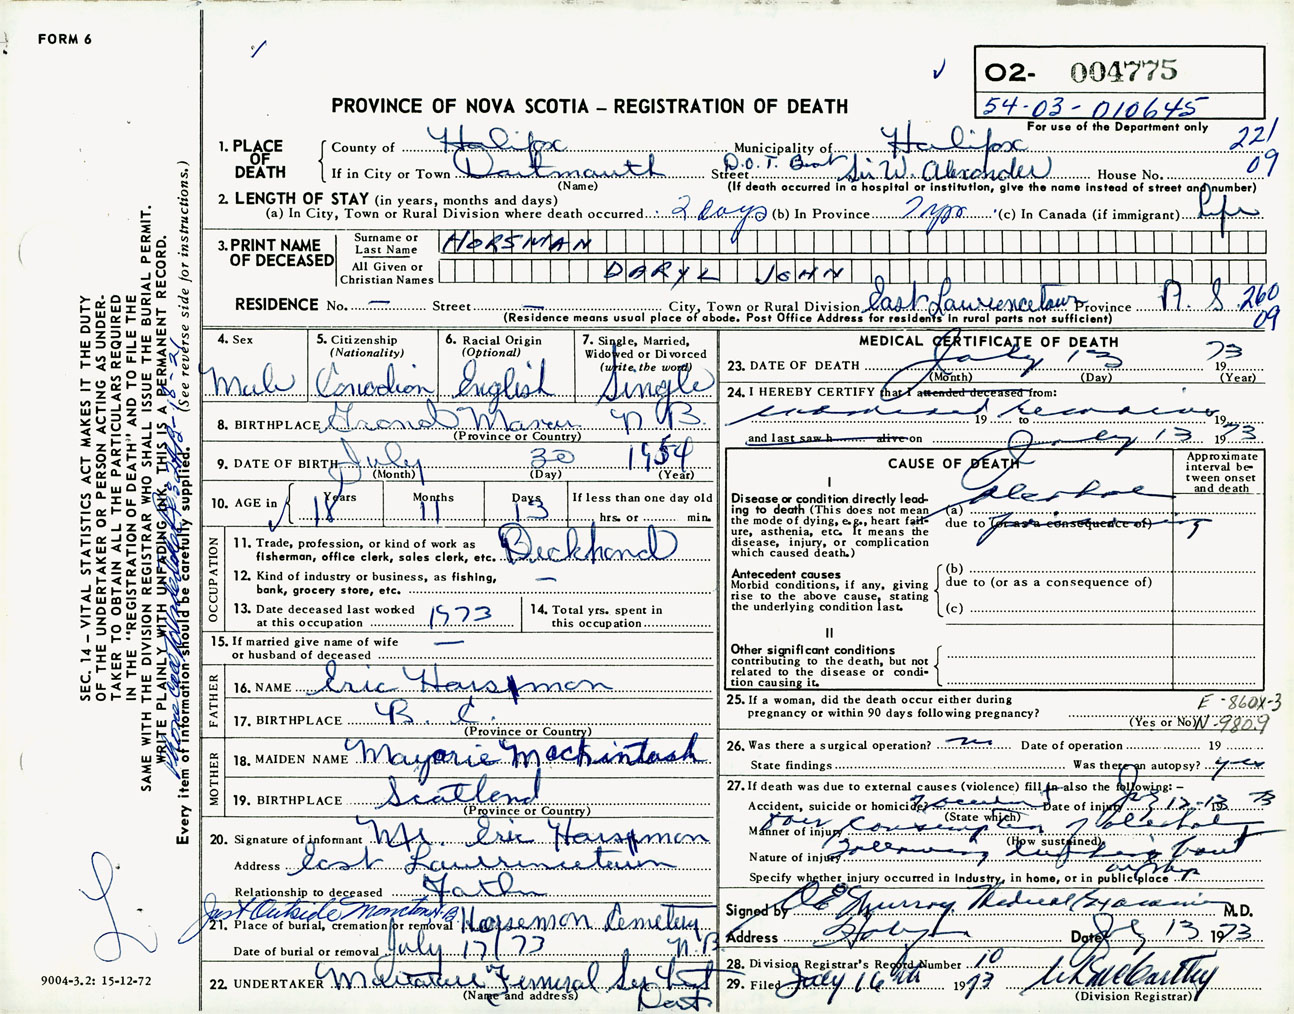 FORM 6
O2- 004775
54-03-010645
For use of the Department only
PROVINCE OF NOVA SCOTIA – REGISTRATION OF DEATH
221
09
1. PLACE OF DEATH
County of Halifax Municipality of Halifax
If in City or Town Dartmouth Street D.O.T. Boat Sir W. Alexander House No.
(Name) (If death occurred in a hospital or institution, give the name instead of street and number)
2. LENGTH OF STAY (in years, months and days)
(a) In City, Town or Rural Division where death occurred 2 days (b) In Province 7 yrs (c) In Canada (if immigrant) Life
3. PRINT NAME OF DECEASED
Surname or Last Name HORSMAN
All Given or Christian Names DARYL JOHN
RESIDENCE No. — Street — City, Town or Rural Division East Lawrencetown Province N. S. 260
09
(Residence means usual place of abode. Post Office Address for residents in rural parts not sufficient)
4. Sex Male
5. Citizenship (Nationality) Canadian
6. Racial Origin (Optional) English
7. Single, Married, Widowed or Divorced (write the word) Single
8. BIRTHPLACE Grand Manan N. B.
(Province or Country)
9. DATE OF BIRTH July 30 1954
(Month) (Day) (Year)
10. AGE in Years 18 Months 11 Days 13 If less than one day old
hrs. or min.
OCCUPATION
11. Trade, profession, or kind of work as fisherman, office clerk, sales clerk, etc. Deckhand
12. Kind of industry or business, as fishing, bank, grocery store, etc. —
13. Date deceased last worked at this occupation 1973
14. Total yrs. spent in this occupation
15. If married give name of wife or husband of deceased —
FATHER
16. NAME Eric Horsman
17. BIRTHPLACE B. C.
(Province or Country)
MOTHER
18. MAIDEN NAME Marjorie Mackintosh
19. BIRTHPLACE Scotland
(Province or Country)
20. Signature of informant Mr. Eric Horsman
Address East Lawrencetown
Relationship to deceased Father
Just Outside Moncton N.B.
21. Place of burial, cremation or removal Horseman Cemetery
Date of burial or removal July 17/73 N.B.
22. UNDERTAKER Funeral
(Name and address) Dart
MEDICAL CERTIFICATE OF DEATH
23. DATE OF DEATH July 13 1973
(Month) (Day) (Year)
24. I HEREBY CERTIFY that I attended deceased from:
examined 19 to 19
and last saw h alive on July 13 1973
CAUSE OF DEATH
Approximate interval between onset and death
I
Disease or condition directly leading to death (This does not mean the mode of dying, e.g., heart failure, asthenia, etc. It means the disease, injury, or complication which caused death.)
(a) alcohol
due to (or as a consequence of)
poisoning
Antecedent causes
Morbid conditions, if any, giving rise to the above cause, stating the underlying condition last.
(b)
due to (or as a consequence of)
(c)
II
Other significant conditions contributing to the death, but not related to the disease or condition causing it.
25. If a woman, did the death occur either during pregnancy or within 90 days following pregnancy?
(Yes or No)
E-860X-3
N-980.9
26. Was there a surgical operation? no Date of operation 19
State findings Was there an autopsy? yes
27. If death was due to external causes (violence) fill in also the following: –
Accident, suicide or homicide? Accident Date of injury July 12-13 1973
(State which)
Manner of injury Over consumption of alcohol
(How sustained)
Nature of injury following drinking bout
Specify whether injury occurred in Industry, in home, or in public place on ship
Signed by Murray Medical Examiner M.D.
Address Halifax Date July 13 1973
28. Division Registrar's Record Number 10
29. Filed July 16th 1973 McCarthy
(Division Registrar)
SEC. 14 – VITAL STATISTICS ACT MAKES IT THE DUTY
OF THE UNDERTAKER OR PERSON ACTING AS UNDER-
TAKER TO OBTAIN ALL THE PARTICULARS REQUIRED
IN THE "REGISTRATION OF DEATH" AND TO FILE THE
SAME WITH THE DIVISION REGISTRAR WHO SHALL ISSUE THE BURIAL PERMIT.
WRITE PLAINLY WITH UNFADING INK, THIS IS A PERMANENT RECORD.
Every item of information should be carefully supplied. (See reverse side for instructions.)
9004-3.2: 15-12-72